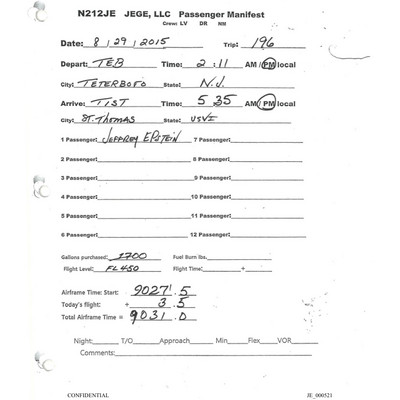 N212JE JEGE, LLC Passenger Manifest
Crew: LV DR NN
Date: 8/29/2015 Trip: 196
Depart: TEB Time: 2:11 AM/PM local
City: TETERBORO State: N.J.
Arrive: TIST Time: 5:35 AM/PM local
City: ST. THOMAS State: USVI
1 Passenger: JEFFREY EPSTEIN 7 Passenger:
2 Passenger: 8 Passenger:
3 Passenger: 9 Passenger:
4 Passenger: 10 Passenger:
5 Passenger: 11 Passenger:
6 Passenger: 12 Passenger:
Gallons purchased: 1700 Fuel Burn lbs.
Flight Level: FL450 Flight Time: +
Airframe Time: Start: 9027.5
Today's flight: + 3.5
Total Airframe Time = 9031.0
Night: T/O Approach Min Flex VOR
Comments:
CONFIDENTIAL JE_000521